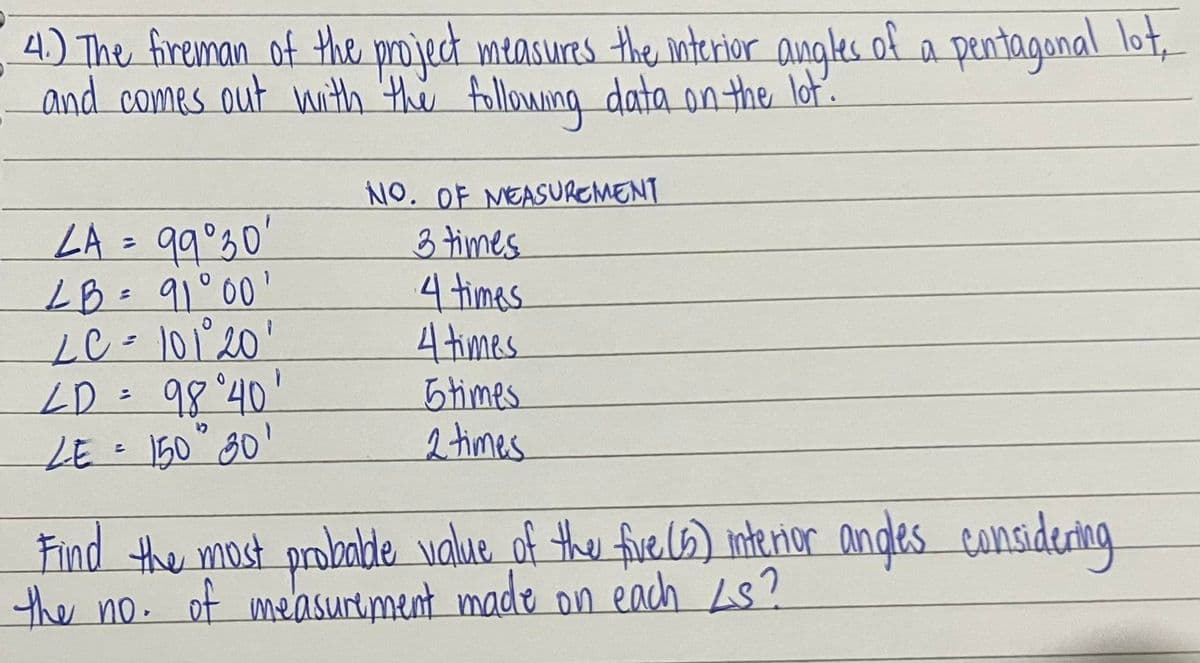 4.) The fireman of the project measures the interior angles of a pentagonal lot,
and comes out with the following data on the lot.
NO. OF MEASUREMENT
∠A = 99°30' 3 times
∠B = 91°00' 4 times
∠C = 101°20' 4 times
∠D = 98°40' 5 times
∠E = 150°30' 2 times
Find the most probable value of the five (5) interior angles considering
the no. of measurement made on each ∠s?